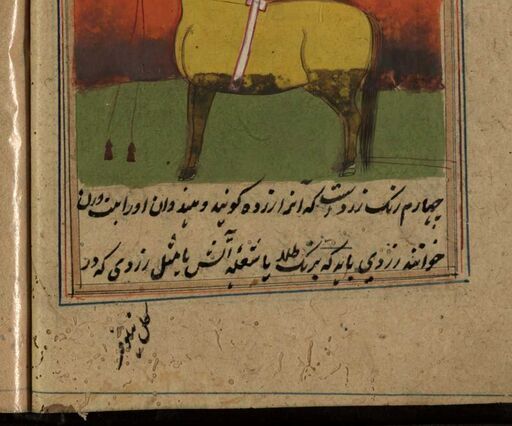 چهارم رنگ زردست که آنرا زرده گویند و هندوان اورا بت ورن
خوانند زردی باید که برنگ طلا یا شعله آتش یا مثل زردی که در
گل نیلوفر